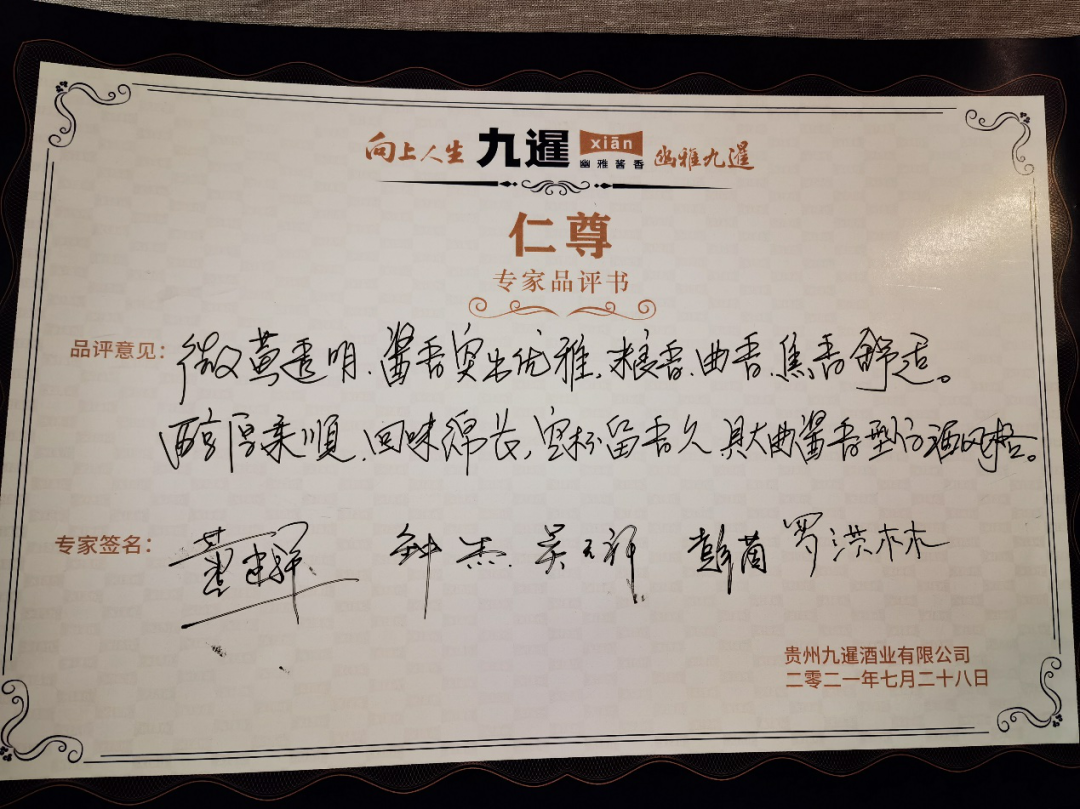 向上人生 九暹 xiān 幽雅酱香 幽雅九暹
仁尊
专家品评书
品评意见：微黄透明、酱香突出优雅、粮香、曲香、焦香舒适。
醇厚柔顺、回味绵长，空杯留香久，具大曲酱香型白酒风格。
专家签名： 钟杰 吴天祥 彭茵 罗洪林
贵州九暹酒业有限公司
二零二一年七月二十八日